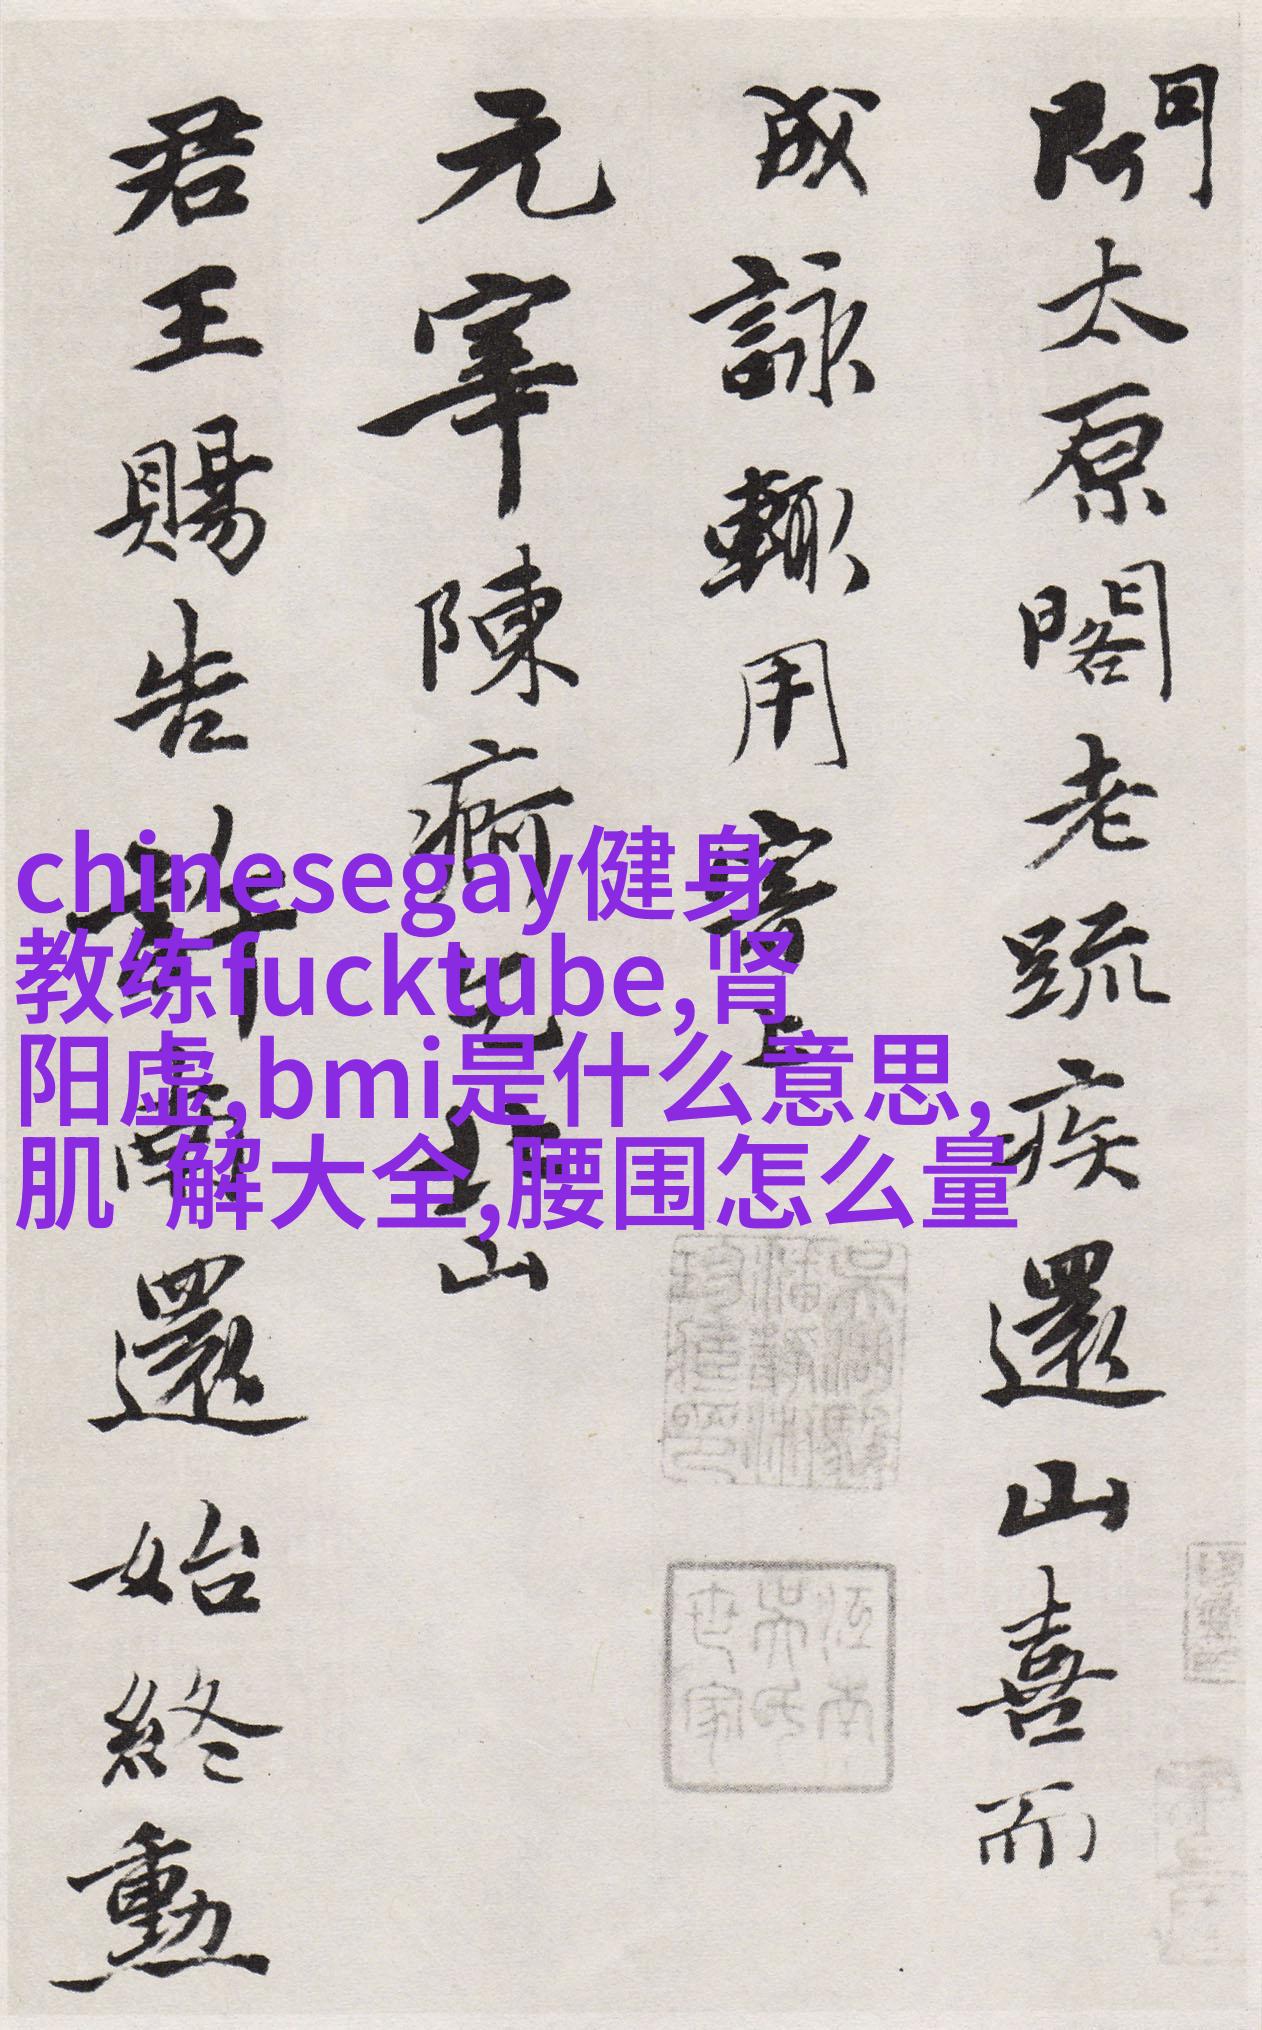 聞太原閣老疏疾還山喜而
成詠輒用寄上
元宰陳疴乞
山
君王賜告許
還始終勳
chinesegay健身
教练fucktube,肾
阳虚,bmi是什么意思,
肌 解大全,腰围怎么量
江南
吴氏
世家